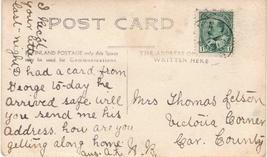 POST CARD
INLAND POSTAGE only this Space
be used for Communications
THE ADDRESS
WRITTEN HERE
your letter
last night
I had a card from
George to-day he
arrived safe will
you send me his
Address. how are you
getting along home
Mrs Thomas
Victoria Corner
Car. County